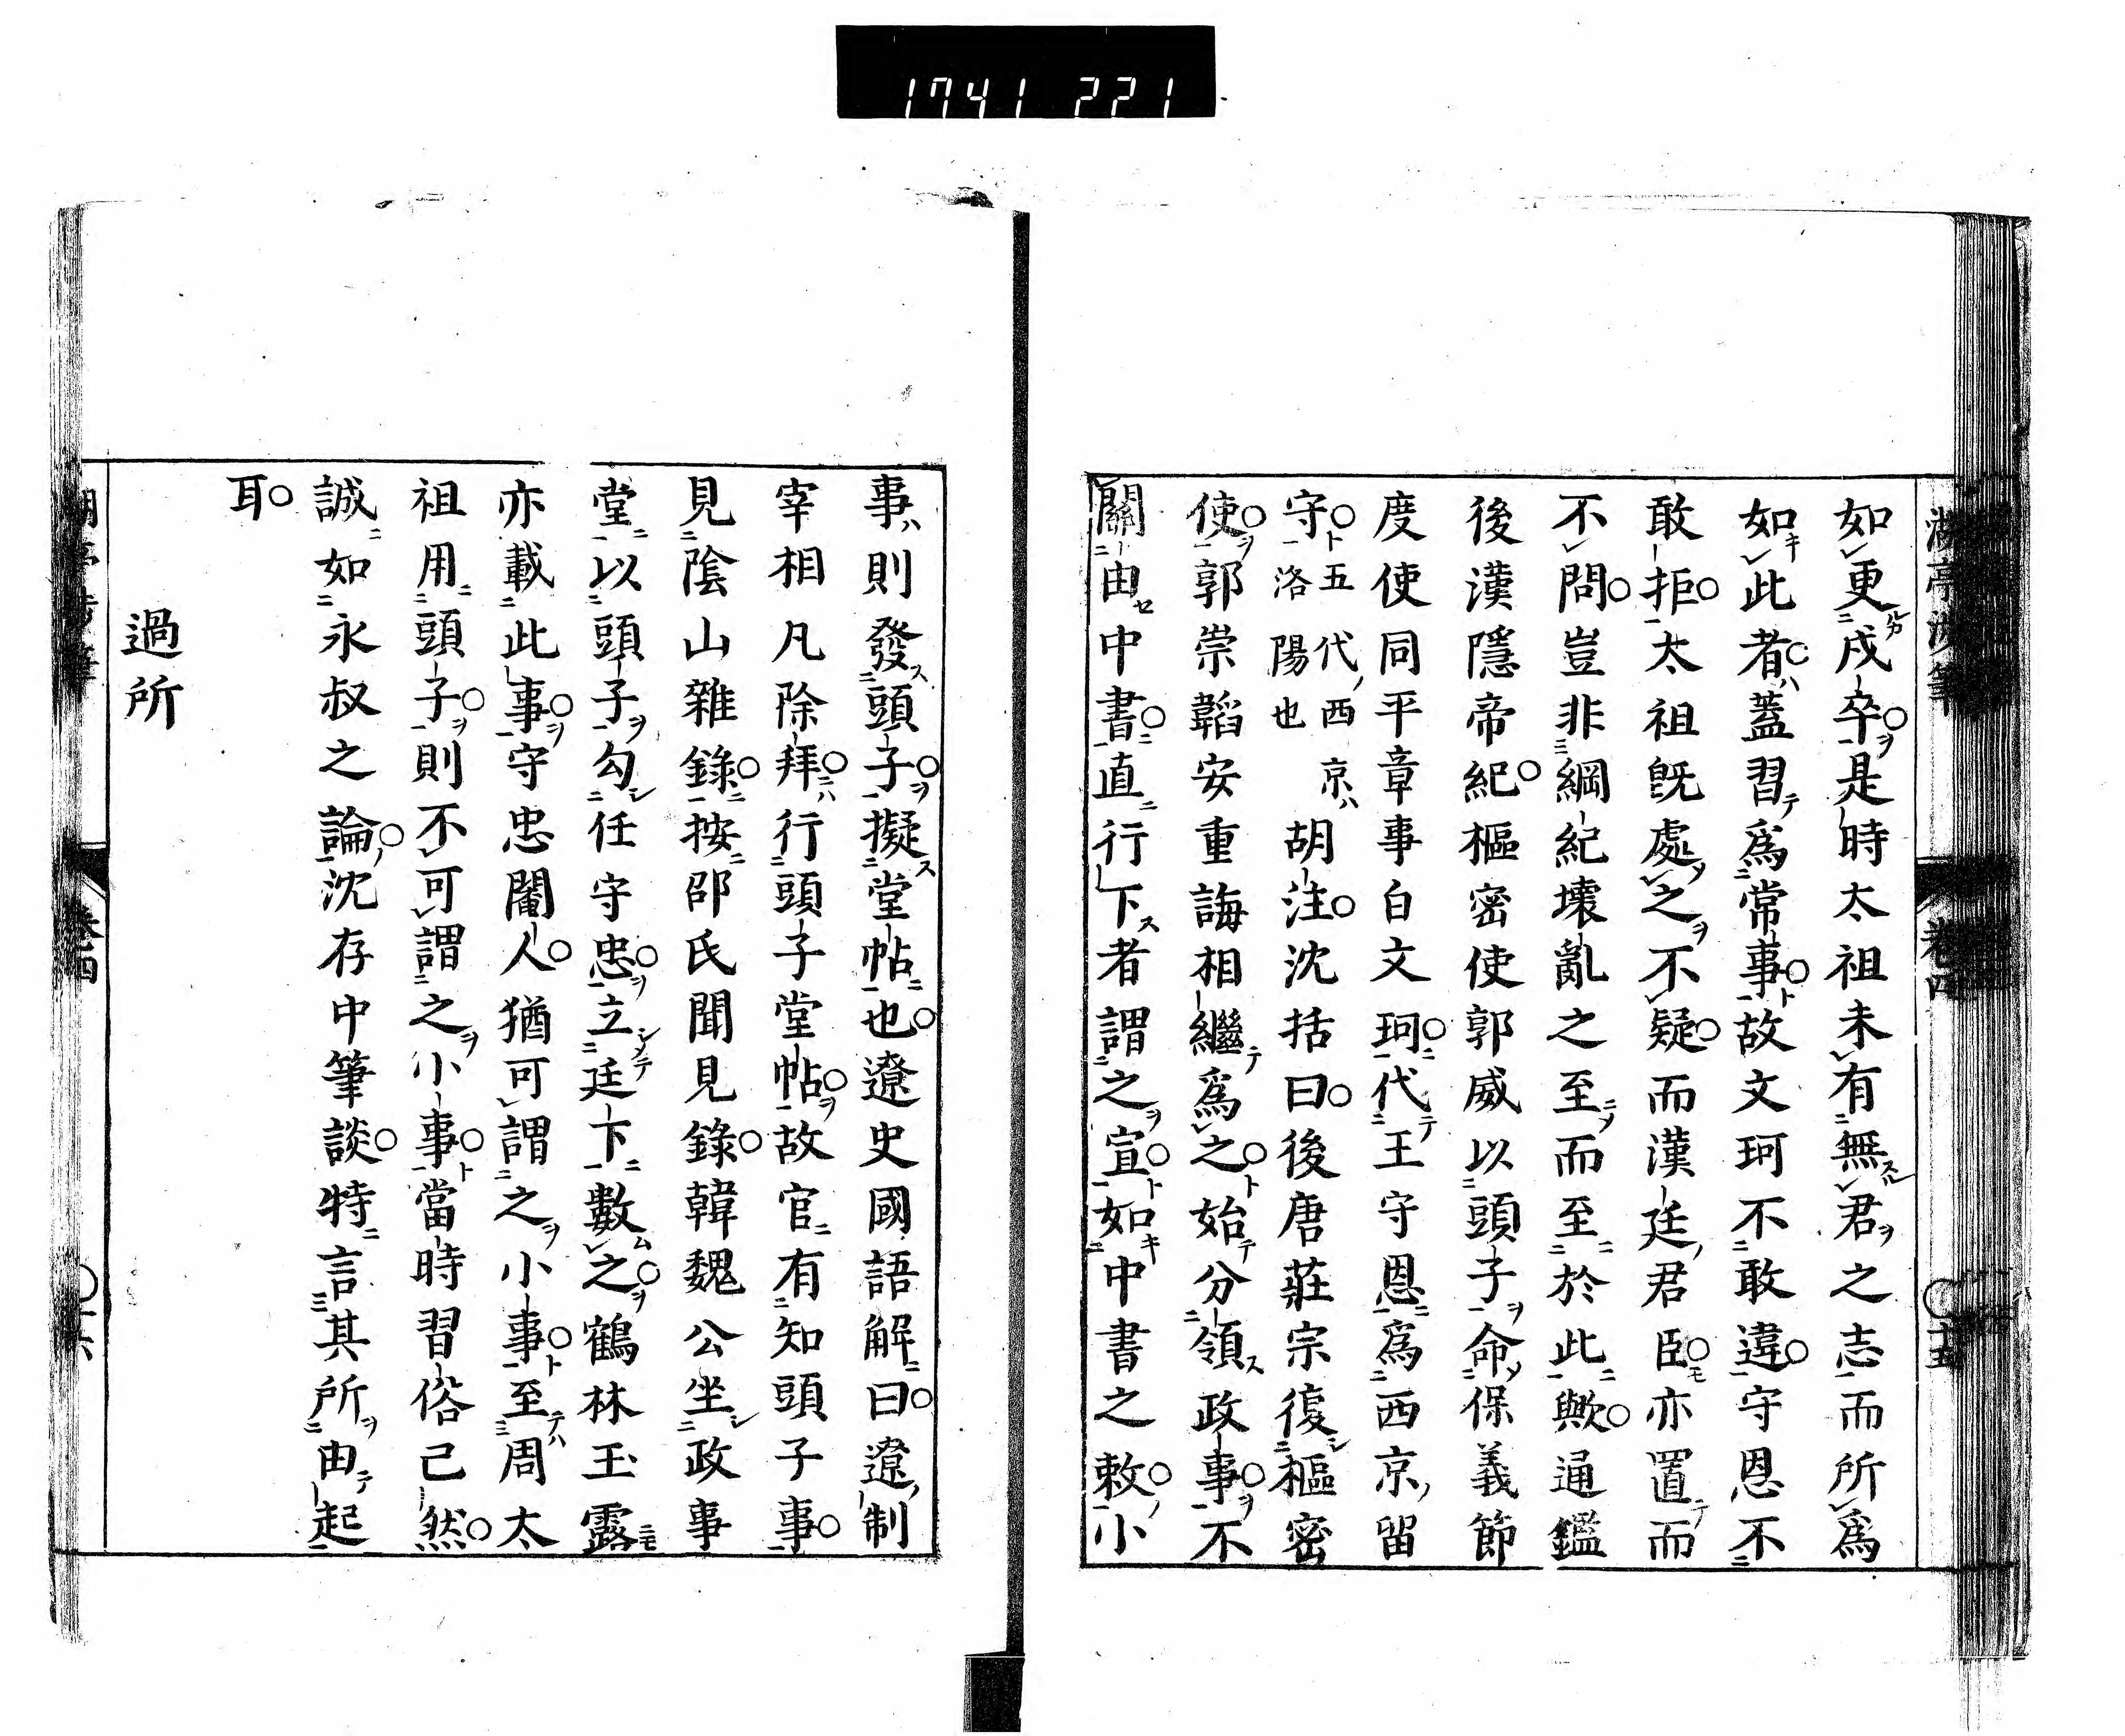 1741 221
如更戍卒是時太祖未有無君之志而所爲
如此者蓋習爲常事故文珂不敢違守恩不
敢拒太祖既處之不疑而漢廷君臣亦置而
不問豈非綱紀壊亂之至而至於此歟通鑑
後漢隱帝紀樞密使郭威以頭子命保義節
度使同平章事白文珂代王守恩爲西京留
守五代西京ハ洛陽也胡注沈括曰後唐莊宗復樞密
使郭崇韜安重誨相繼爲之始分領政事不
關由中書直行下者謂之宣如中書之敕小
事則發頭子擬堂帖也遼史國語解曰遼制
宰相凡除拜行頭子堂帖故官有知頭子事
見陰山雜錄按邵氏聞見錄韓魏公坐政事
堂以頭子勾任守忠立廷下數之鶴林玉露
亦載此事守忠閹人猶可謂之小事至周太
祖用頭子則不可謂之小事當時習俗已然
誠如永叔之論沈存中筆談特言其所由起
耳
過所